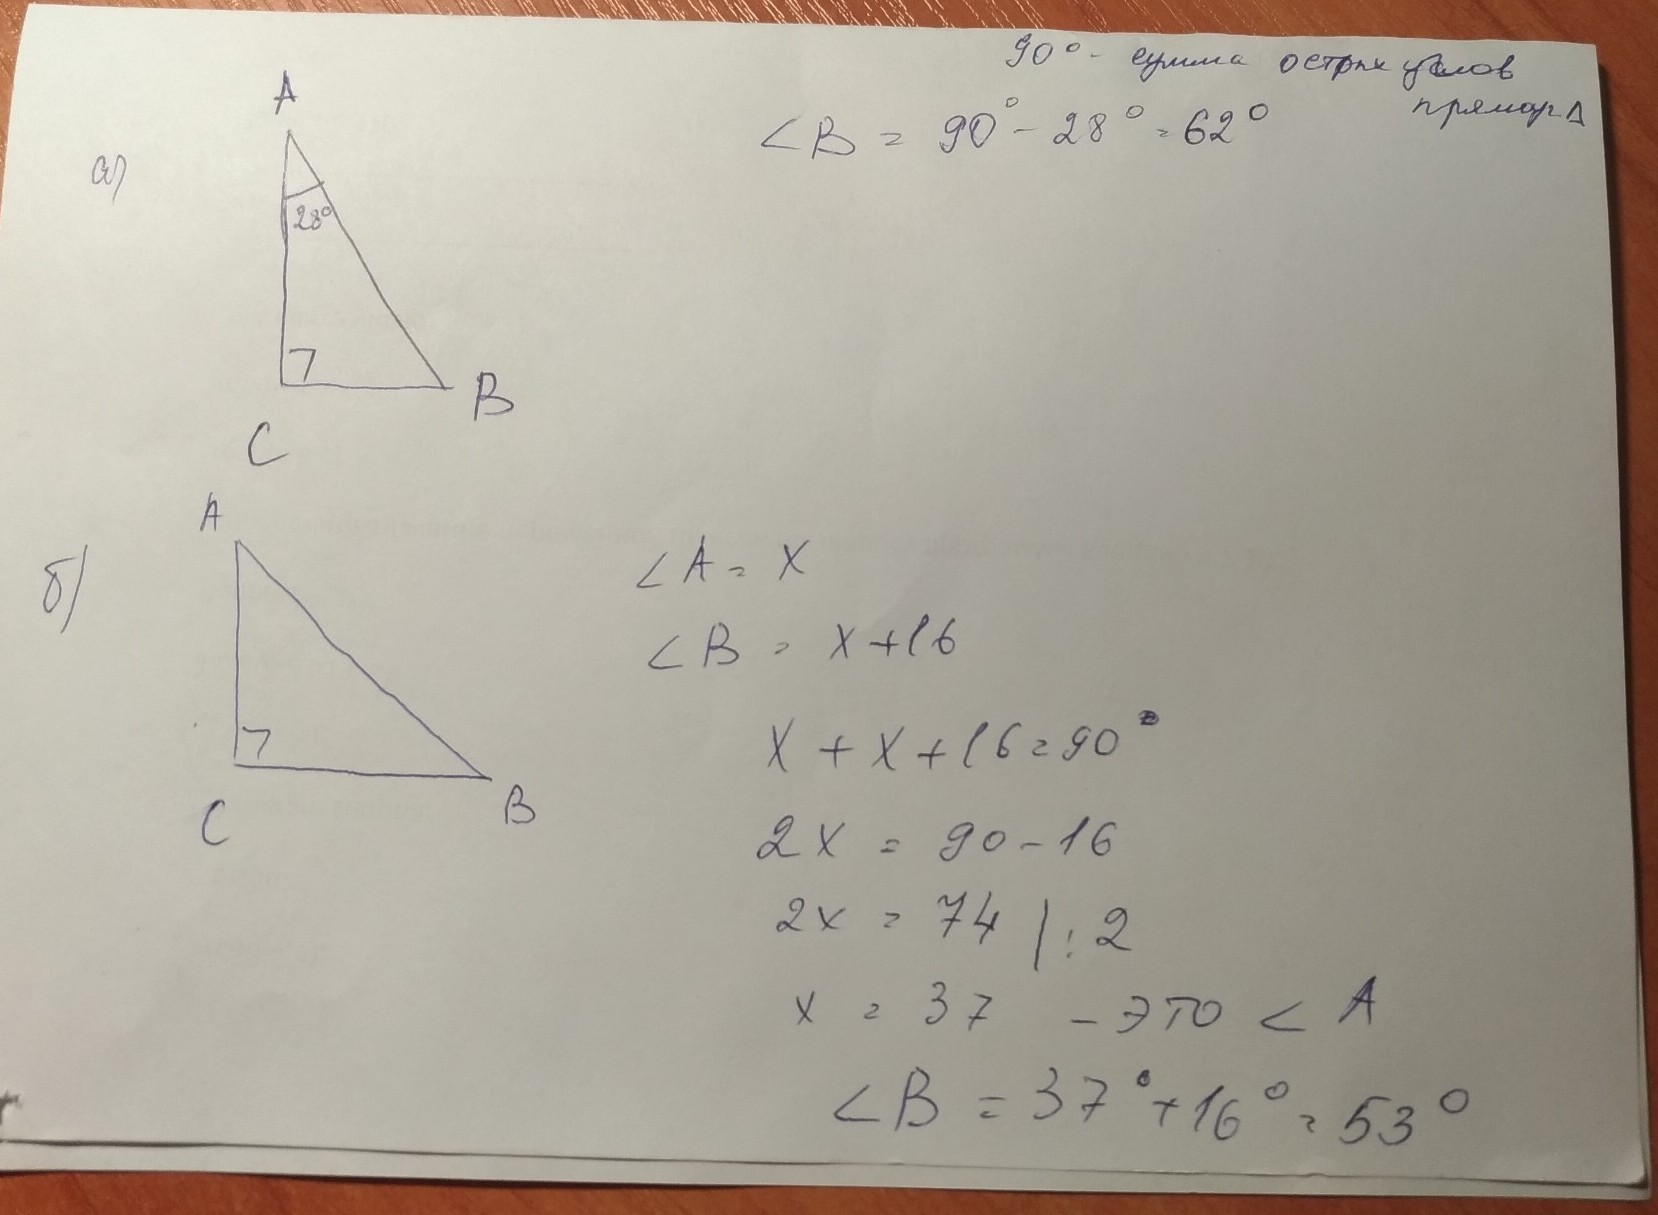 90° - сумма острых углов
прямоуг Δ
∠B = 90° - 28° = 62°
а)
A
28°
C
B
б)
A
C
B
∠A = x
∠B = x+16
x + x + 16 = 90°
2x = 90 - 16
2x = 74 | : 2
x = 37 - это ∠A
∠B = 37° + 16° = 53°